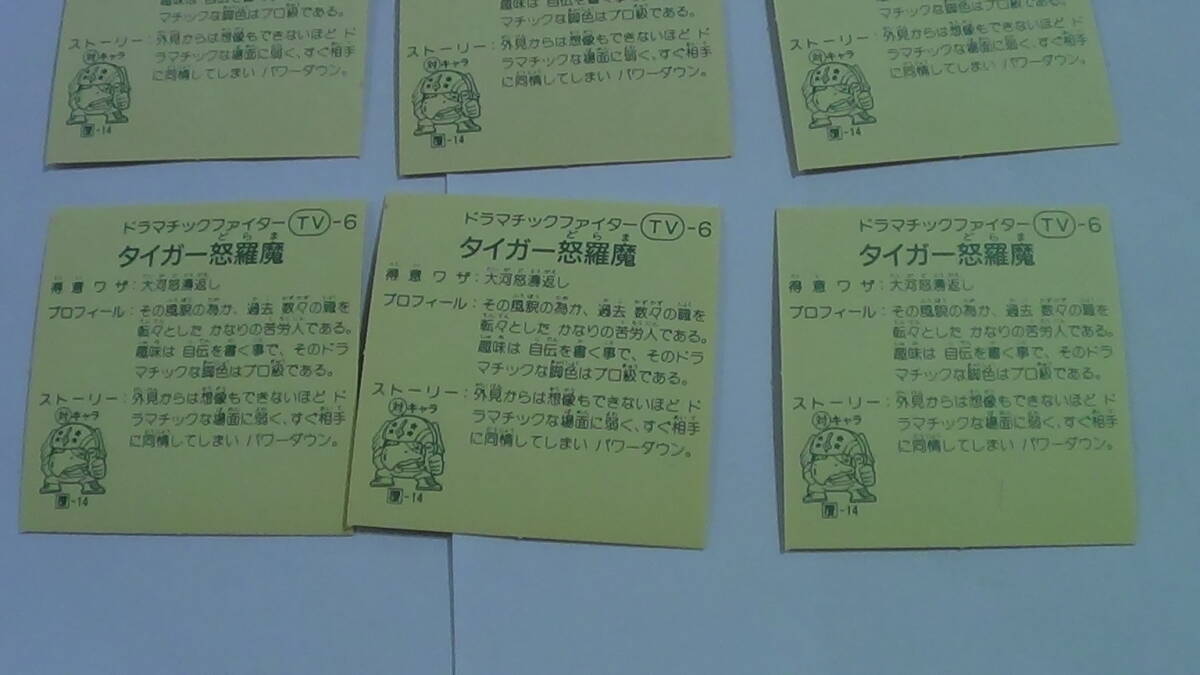 趣味は 自伝を書く事で、そのドラ
マチックな脚色はプロ級である。
ストーリー：外見からは想像もできないほど ド
ラマチックな場面に弱く、すぐ相手
に同情してしまい パワーダウン。
対キャラ
-14
マチックな脚色はプロ級である。
ストーリー：外見からは想像もできないほど ド
ラマチックな場面に弱く、すぐ相手
に同情してしまい パワーダウン。
対キャラ
-14
マチックな脚色はプロ級である。
ストーリー：外見からは想像もできないほど ド
ラマチックな場面に弱く、すぐ相手
に同情してしまい パワーダウン。
対キャラ
-14
ドラマチックファイター TV-6
どらま
タイガー怒羅魔
得意ワザ：大河怒濤返し
プロフィール：その風貌の為か、過去 数々の職を
転々とした かなりの苦労人である。
趣味は 自伝を書く事で、そのドラ
マチックな脚色はプロ級である。
ストーリー：外見からは想像もできないほど ド
ラマチックな場面に弱く、すぐ相手
に同情してしまい パワーダウン。
対キャラ
-14
ドラマチックファイター TV-6
どらま
タイガー怒羅魔
得意ワザ：大河怒濤返し
プロフィール：その風貌の為か、過去 数々の職を
転々とした かなりの苦労人である。
趣味は 自伝を書く事で、そのドラ
マチックな脚色はプロ級である。
ストーリー：外見からは想像もできないほど ド
ラマチックな場面に弱く、すぐ相手
に同情してしまい パワーダウン。
対キャラ
-14
ドラマチックファイター TV-6
どらま
タイガー怒羅魔
得意ワザ：大河怒濤返し
プロフィール：その風貌の為か、過去 数々の職を
転々とした かなりの苦労人である。
趣味は 自伝を書く事で、そのドラ
マチックな脚色はプロ級である。
ストーリー：外見からは想像もできないほど ド
ラマチックな場面に弱く、すぐ相手
に同情してしまい パワーダウン。
対キャラ
-14